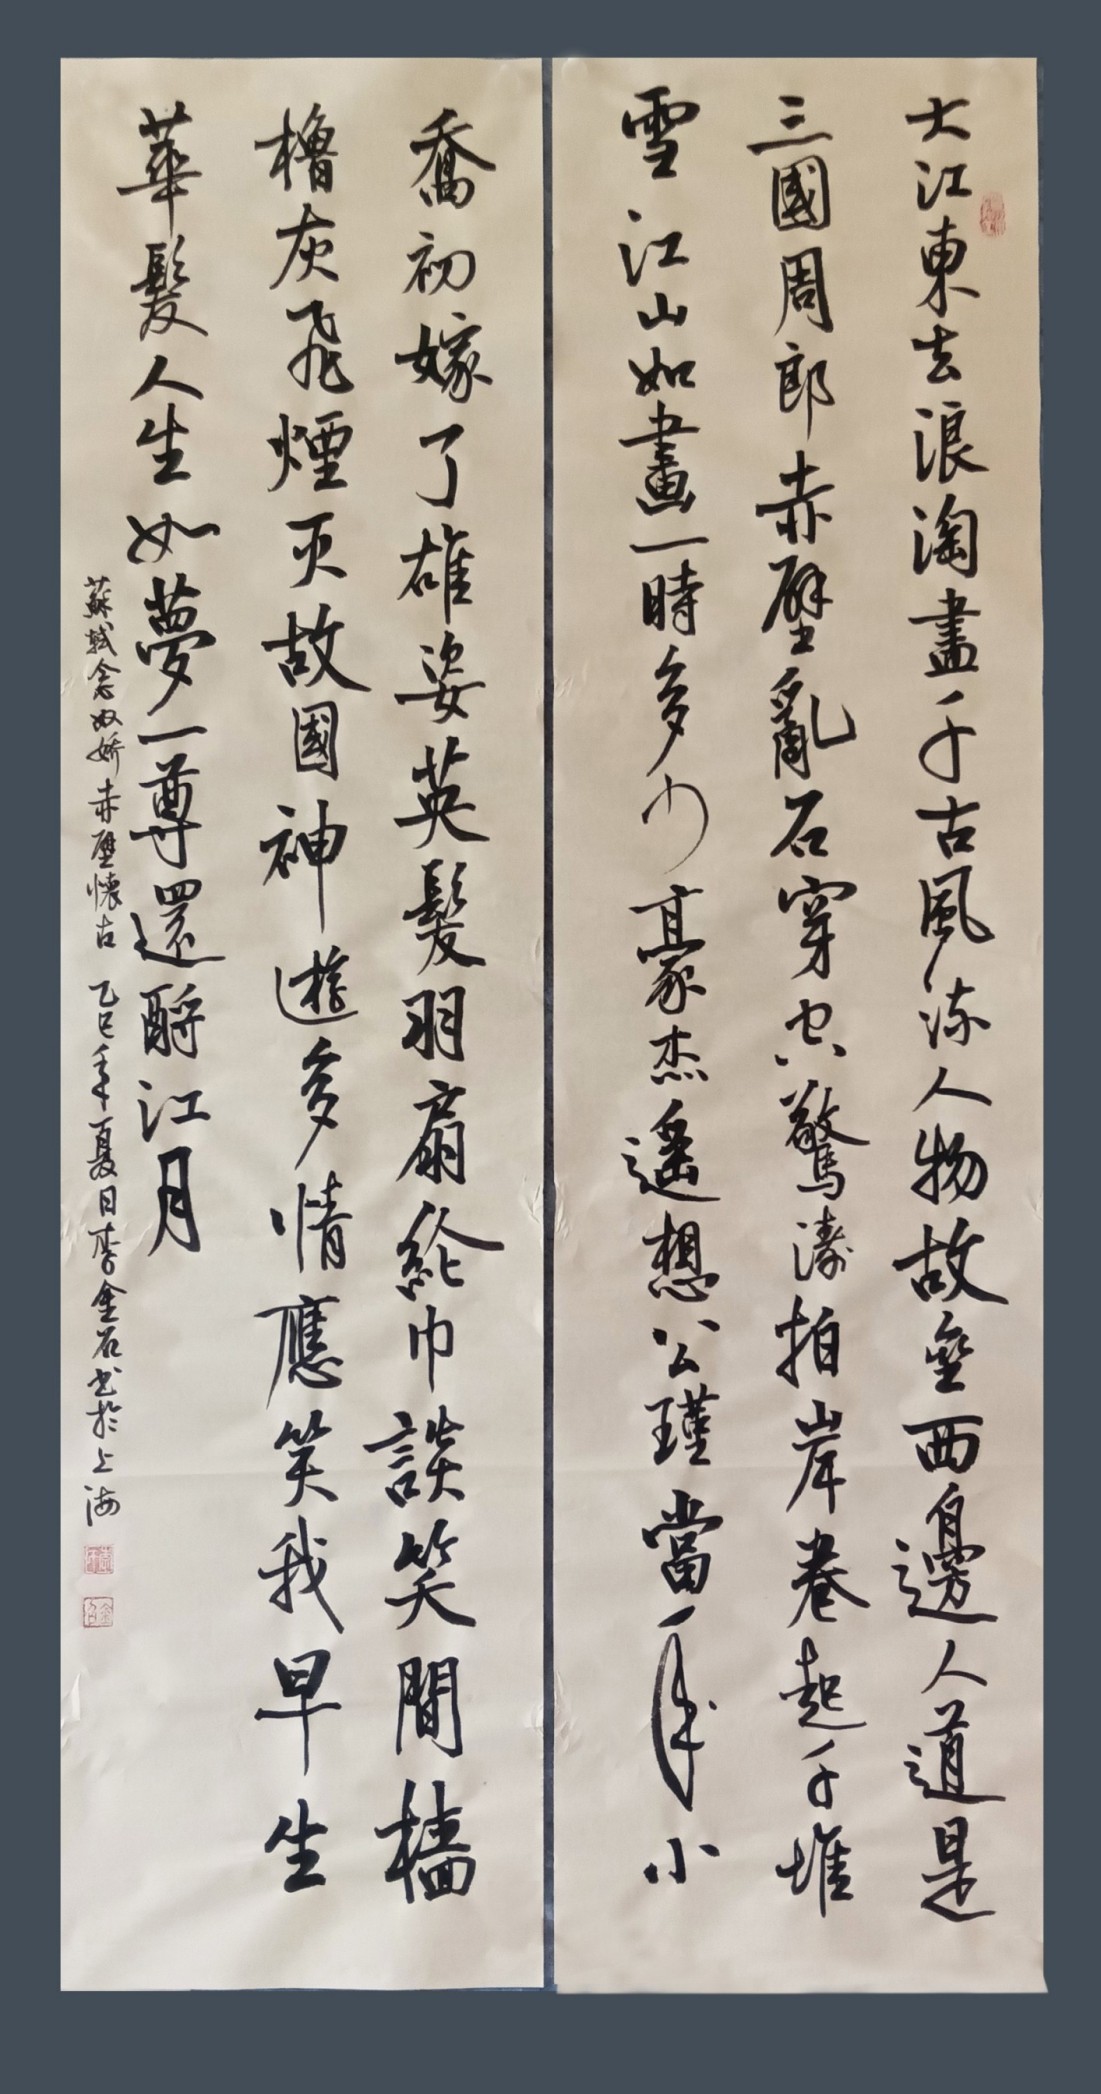 大江東去浪淘盡千古風流人物故壘西邊人道是
三國周郎赤壁亂石穿空驚濤拍岸卷起千堆
雪江山如畫一時多少豪杰遥想公瑾當年小
喬初嫁了雄姿英髮羽扇綸巾談笑間檣
櫓灰飛煙灭故國神遊多情應笑我早生
華髮人生如夢一尊還酹江月
蘇軾念奴嬌赤壁懷古 乙巳年夏日李金石书於上海